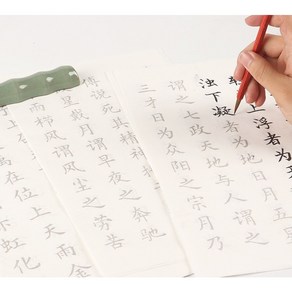 上浮者为天
浊下凝者为地日月五
谓之七政天地与人谓之
三才日为众阳之宗月乃
傅说死其精神
星戴月谓早夜之奔驰
雨栉风谓风尘之劳苦
在位上天雨金
虹化